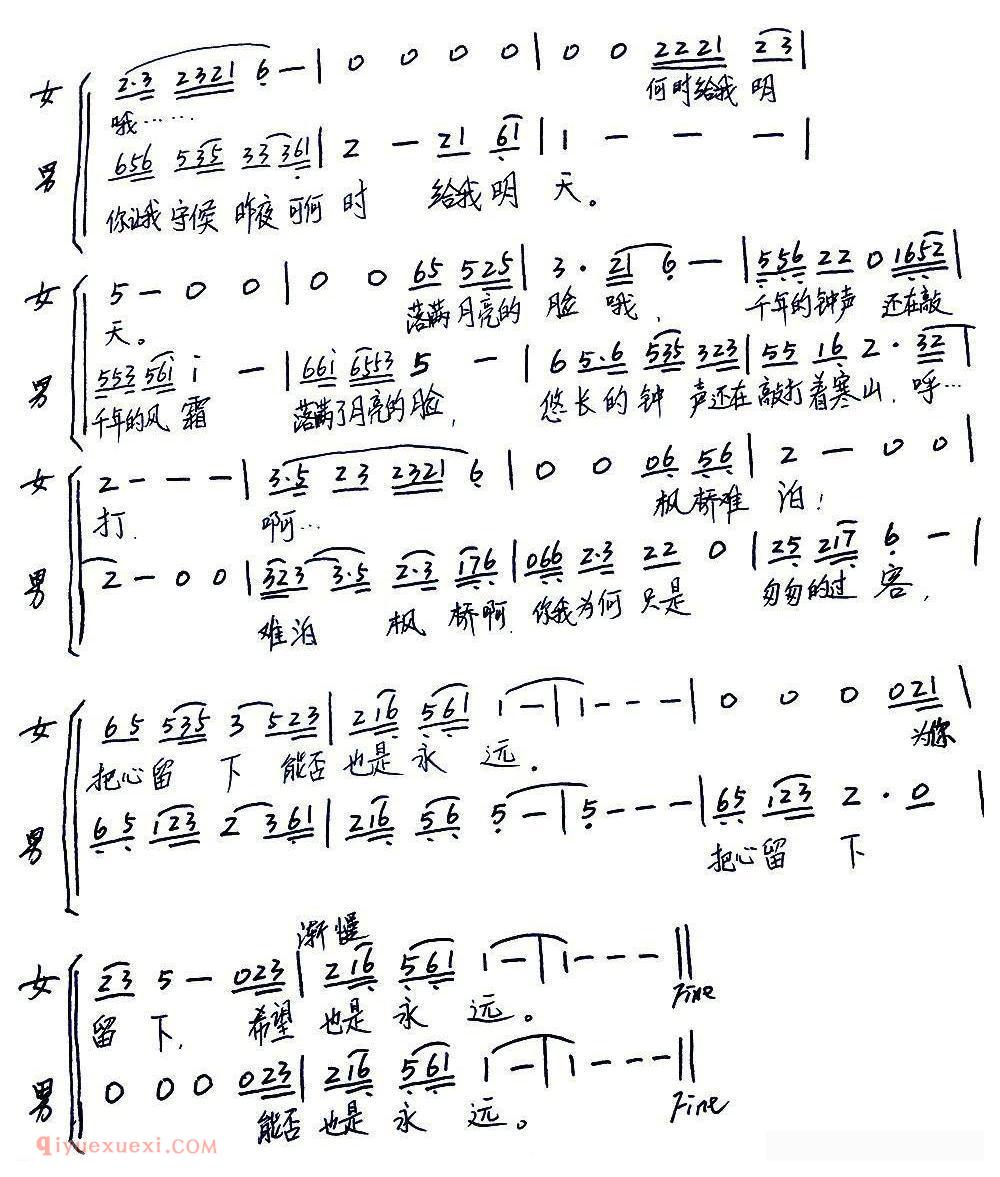 女 2·3 2321 6 — | 0 0 0 0 | 0 0 2221 23 |
哦…… 何时给我 明
男 656 535 33 361 | 2 — 21 61 | 1 — — — |
你让我 守候 昨夜 可何 时 给我 明 天。
女 5 — 0 0 | 0 0 65 525 | 3 · 21 6 — | 556 22 0 1652 |
天。 落满 月亮的 脸 哦, 千年的 钟声 还在敲
男 553 561 i — | 66i 6553 5 — | 6 5·6 535 323 | 55 16 2 · 32 |
千年的风 霜 落满了月亮的脸, 悠长的 钟 声还在敲打着寒山, 呼…
女 2 - - - | 3·5 23 2321 6 | 0 0 06 56 | 2 — 0 0 |
打, 啊… 枫桥难 泊;
男 2 — 0 0 | 323 3·5 2·3 176 | 066 2·3 22 0 | 25 217 6 — |
难泊 枫 桥啊, 你我为何 只是 匆匆的过 客,
女 65 535 3 523 | 216 561 1 — | 1 - - - | 0 0 0 021 |
把心留 下 能否 也是 永 远。 为你
男 65 123 2 361 | 216 56 5 — | 5 - - - | 65 123 2 · 0 |
把心留 下
渐慢
女 23 5 — 023 | 216 561 1 — | 1 - - - ||
Fine
留 下, 希望 也是 永 远。
男 0 0 0 023 | 216 561 1 — | 1 - - - ||
能否 也是 永 远。 Fine
qiyuexuexi.COM